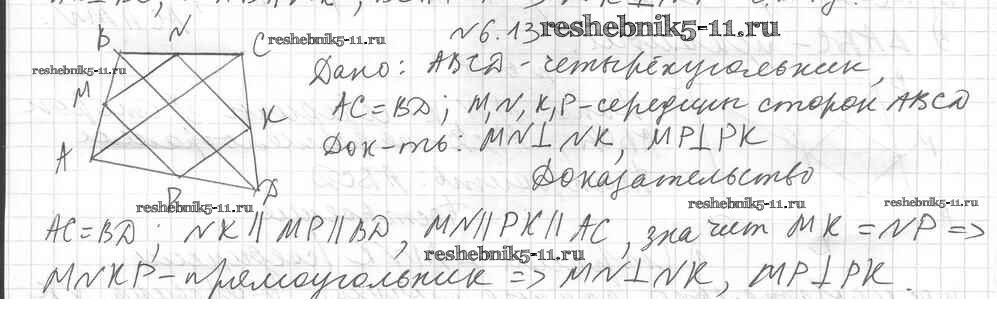 №6.13
reshebnik5-11.ru
B N C reshebnik5-11.ru
reshebnik5-11.ru
Дано: ABCD - четырёхугольник,
M K
AC=BD; M,N,K,P-середины сторон ABCD
A
Док-ть: MN⊥NK, MP⊥PK
P D
Доказательство
reshebnik5-11.ru reshebnik5-11.ru
AC=BD; NK∥MP∥BD, MN∥PK∥AC, значит MK=NP=>
reshebnik5-11.ru
MNKP-прямоугольник => MN⊥NK, MP⊥PK.